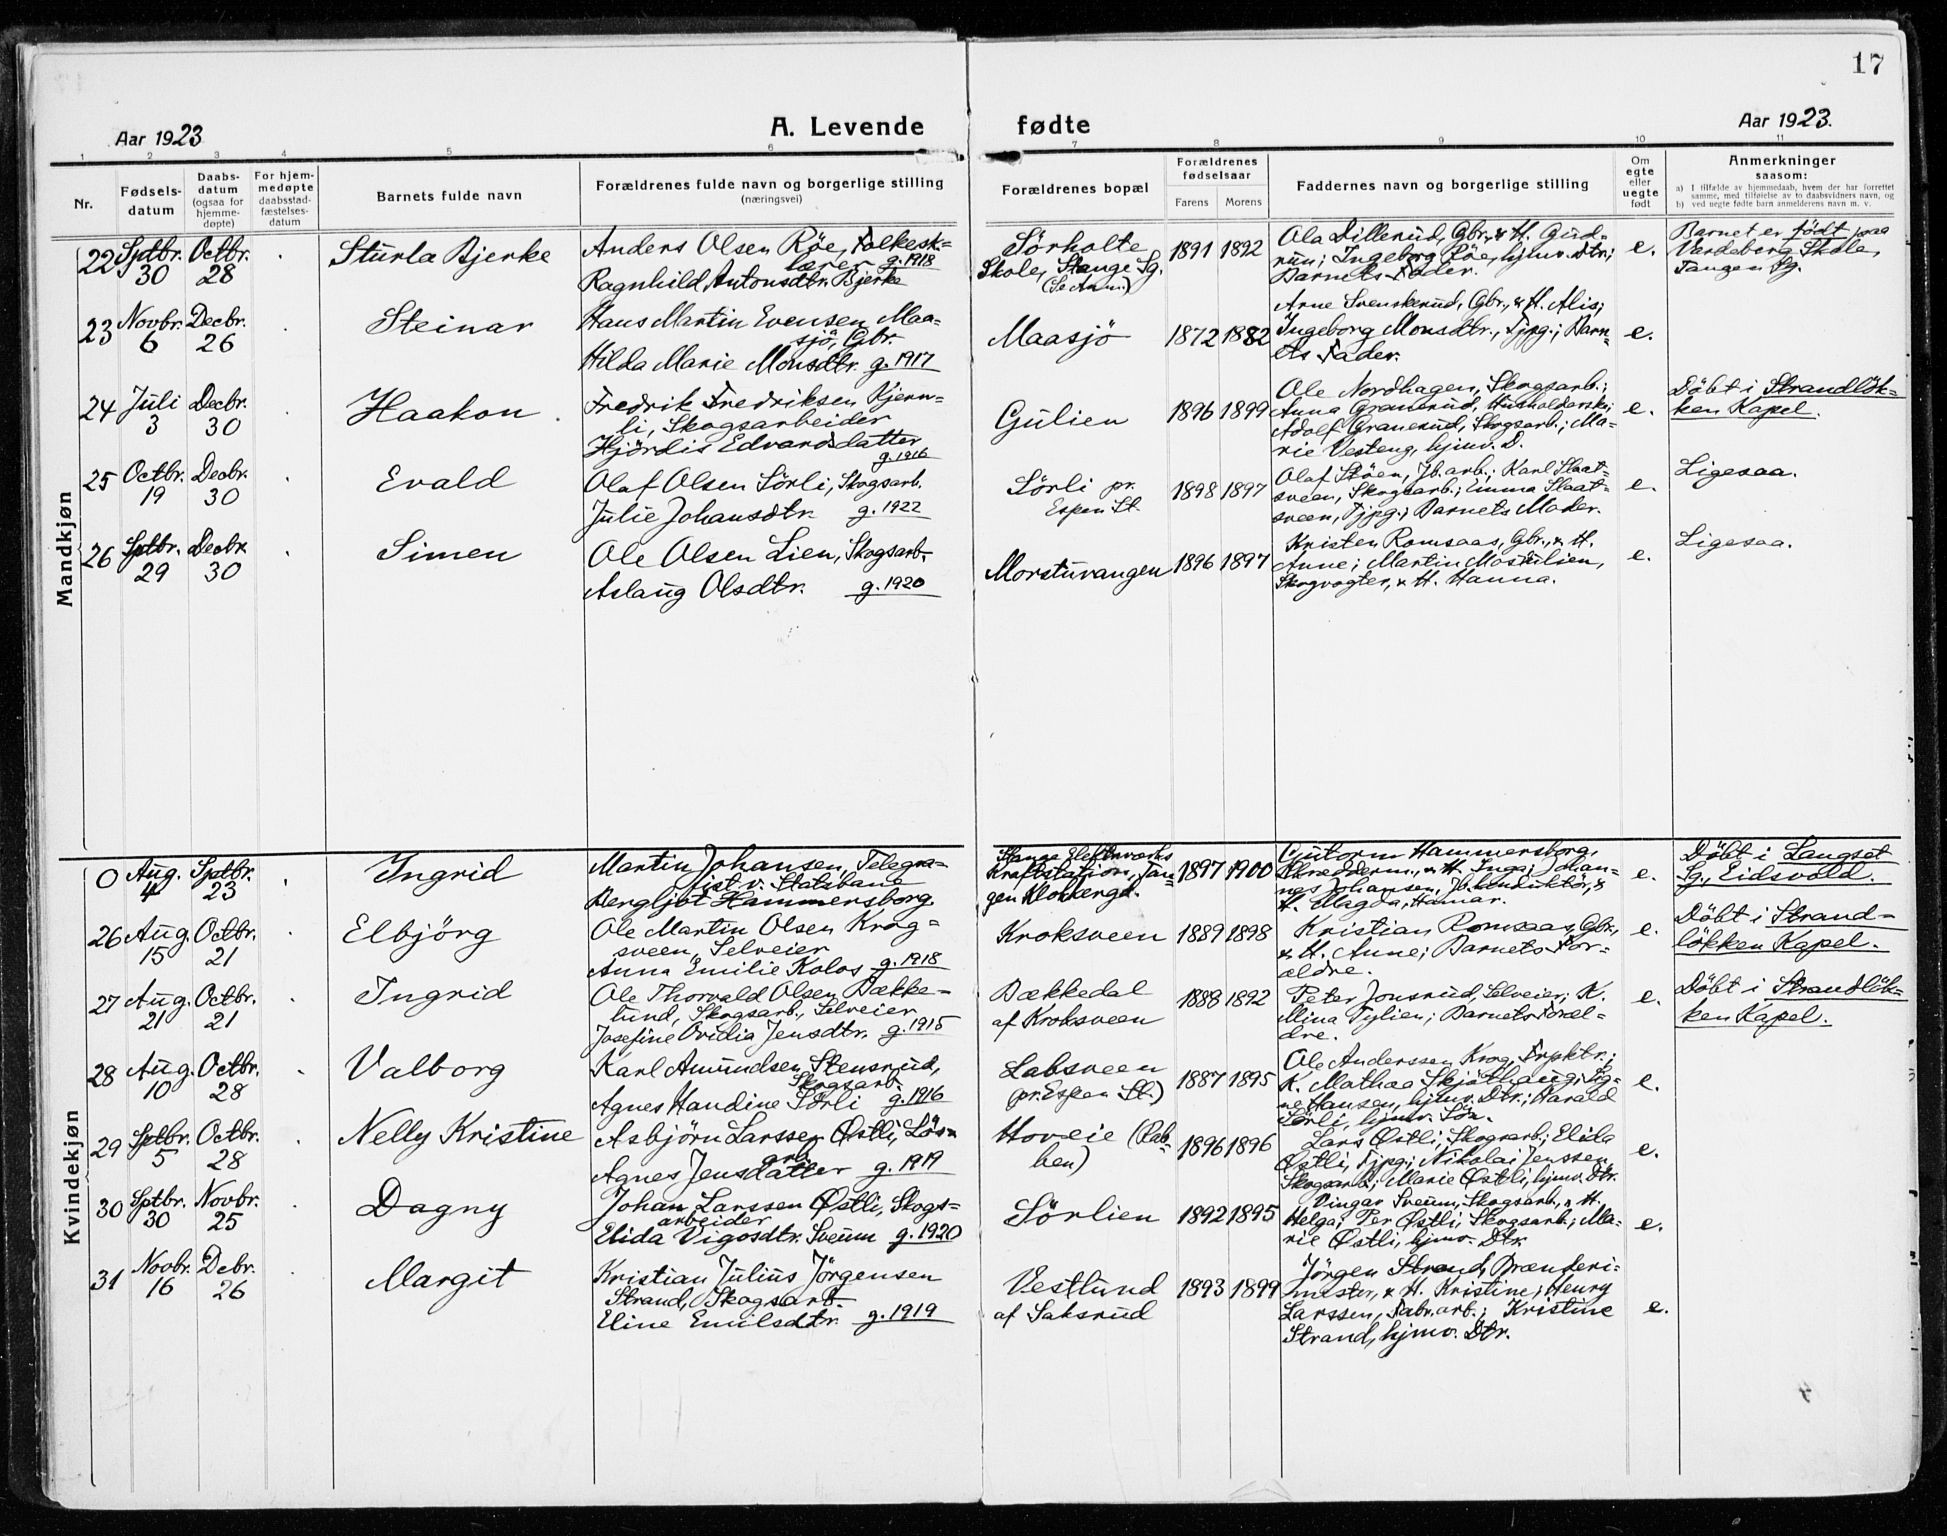 17
Aar 1923
A. Levende
fødte
Aar 1923.
1 2 3 4 5 6 7 8 9 10 11
Nr.
Fødsels-
datum
Daabs-
datum
(ogsaa for
hjemme-
døpte)
For hjem-
medøpte
daabsstad-
fæstelses-
datum
Barnets fulde navn
Forældrenes fulde navn og borgerlige stilling
(næringsvei)
Forældrenes bopæl
Forældrenes
fødselsaar
Farens Morens
Faddernes navn og borgerlige stilling
Om
egte
eller
uegte
født
Anmerkninger
saasom:
a) I tilfælde av hjemmedaab, hvem der har forrettet
samme, med tilføielse av to daabsvidners navn, og
b) ved uegte fødte barn anmelderens navn m. v.
Mandkjøn
22 Sptbr. 30 Octbr. 28
Sturla Bjerke
Anders Olsen Röe, Folkesk-
lærer g. 1918
Ragnhild Antonsdtr. Bjerke
Sörholte
Skole, Stange Sg.
(Se Anm.)
1891 1892
Ola Dillerud, Gbr., & H. Gud-
run; Ingeborg Röe, hjmv. Dtr.;
Barnets Fader.
e.
Barnet er født paa
Vardeberg Skole,
Tangen Sg.
23 Novbr. 6 Decbr. 26
Steinar
Hans Martin Evensen Maa-
sjö, Gbr.
Hilda Marie Monsdtr. g. 1917
Maasjö
1872 1882
Arne Svenskerud, Gbr., & H. Alis;
Ingeborg Monsdtr., Tjpg.; Barn-
ets Fader.
e.
24 Juli 3 Decbr. 30
Haakon.
Fredrik Fredriksen Kjern-
li, Skogsarbeider
Hjördis Edvardsdatter
g. 1916
Gulien
1896 1899
Ole Nordhagen, Skogsarb.;
Anna Granerud, Husholderske;
Adolf Granerud, Skogsarb.; Ma-
rie Vesteng, hjmv. D.
e.
Döbt i Strandlök-
ken Kapel.
25 Octbr. 19 Decbr. 30
Evald
Olaf Olsen Sörli, Skogsarb.
Julie Johansdtr. g. 1922
Sörli pr.
Espen St.
1898 1897
Olaf Stöen, Jb. arb.; Karl Slaat-
sveen, Skogsarb.; Emma Slaat-
sveen, Tjpg.; Barnets Moder.
e.
Ligesaa.
26 Sptbr. 29 Decbr. 30
Simen
Ole Olsen Lien, Skogsarb.
Aslaug Olsdtr. g. 1920
Morstuvangen
1896 1897
Kristen Romsaas, Gbr., & H.
Anne; Martin Mostulien,
Skogvogter, & H. Hanna.
e.
Ligesaa.
Kvindekjøn
0 Aug. 4 Sptbr. 23
Ingrid
Martin Johansen, Telegra-
fist v. Statsbane
Bergljot Hammersborg.
Stange Elektr.værks
Kraftstation, Tan-
gen Klokkergd.
1897 1900
Gutorm Hammersborg,
Skræderm., & H. Inga; Johan-
nes Johansen, Jb.konduktör, &
H. Magda, Hamar.
e.
Döbt i Langset
Sg., Eidsvold.
26 Aug. 15 Octbr. 21
Elbjörg
Ole Martin Olsen Krog-
sveen, Selveier
Anna Emilie Kolos g. 1918
Kroksveen
1889 1898
Kristian Romsaas, Gbr.,
& H. Anne; Barnets For-
ældre.
e.
Döbt i Strand-
lökken Kapel.
27 Aug. 21 Octbr. 21
Ingrid
Ole Thorvald Olsen Bække-
lund, Skogsarb., Selveier
Josefine Ovidia Jensdtr. g. 1915
Bækkedal
af Kroksveen
1888 1892
Peter Jonsrud, Selveier; K.
Mina Tylien; Barnets Foræl-
dre.
e.
Döbt i Strandlök-
ken Kapel.
28 Aug. 10 Octbr. 28
Valborg
Karl Amundsen Stensrud,
Skogsarb.
Agnes Handine Sörli g. 1916
Labsveen
(pr. Espen St.)
1887 1895
Ole Anderssen Krog, Inpktr.;
K. Mathea Skjöthaug; Sig-
ne Hansen, hjmv. Dtr.; Harald
Sörli, hjmv. Sön.
e.
29 Sptbr. 5 Octbr. 28
Nelly Kristine
Asbjörn Larssen Østli, Lös-
arb.
Agnes Jensdatter g. 1919
Hoveie (Lab-
ben)
1896 1896
Lars Østli, Skogsarb.; Elida
Østli, Tjpg.; Nikolai Jenssen,
Skogsarb.; Marie Østli, hjmv. Dtr.
e.
30 Sptbr. 30 Novbr. 25
Dagny
Johan Larssen Østli, Skogs-
arbeider
Elida Vigosdtr. Sveum g. 1920
Sörlien
1892 1895
Vingar Sveum, Skogsarb., & H.
Helga; Per Østli, Skogsarb.; Ma-
rie Østli, hjmv. Dtr.
e.
31 Novbr. 16 Debr. 26
Margit
Kristian Julius Jörgensen
Strand, Skogsarb.
Eline Emilsdtr. g. 1919
Vestlund
af Saksrud
1893 1899
Jörgen Strand, Brænderi-
mester, & H. Kristine; Henry
Larssen, Fabr.arb.; Kristine
Strand, hjmv. Dtr.
e.